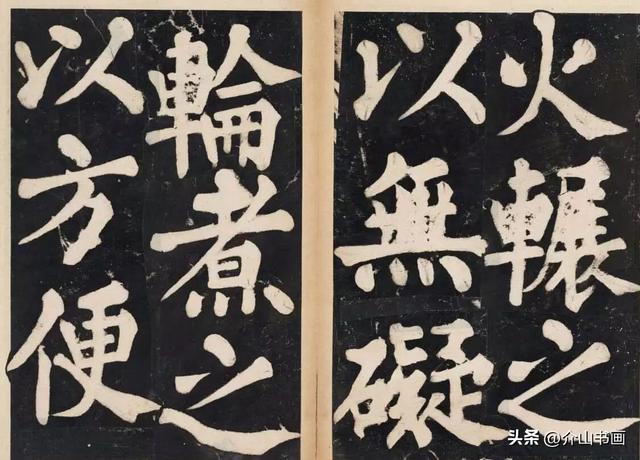 火輾之
以無礙
輪煮之
以方便
头条@介山书画